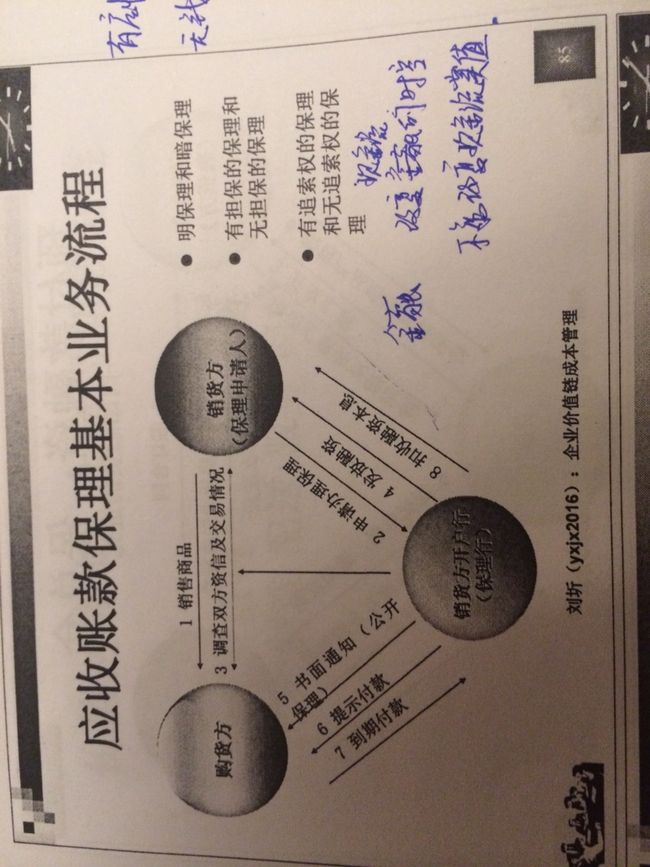 应收账款保理基本业务流程
购货方
销货方
(保理申请人)
销货方开户行
(保理行)
1 销售商品
3 调查双方资信及交易情况
2 申请办理保理
4 发放融资
8 扣收融资本息
5 书面通知(公开
保理)
6 提示付款
7 到期付款
● 明保理和暗保理
● 有担保的保理和
无担保的保理
● 有追索权的保理
和无追索权的保
理
刘圻(yxjx2016):企业价值链成本管理
85
金融
现金流
改变
不能